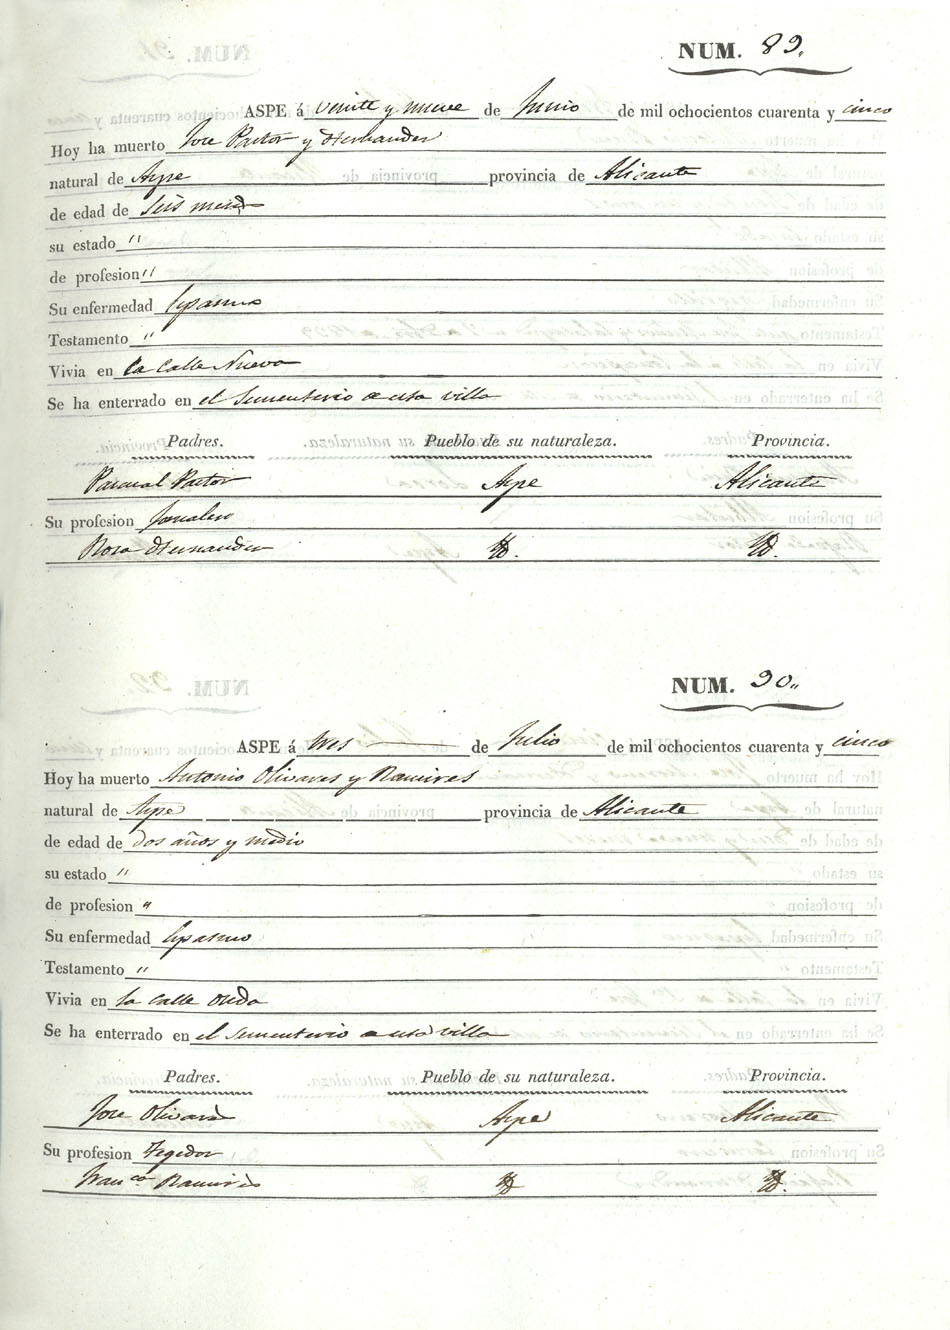 NUM. 89.
ASPE á veinte y nueve de Junio de mil ochocientos cuarenta y cinco
Hoy ha muerto Jose Pastor y Hernander
natural de Aspe provincia de Alicante
de edad de seis meses
su estado "
de profesion "
Su enfermedad Espasmo
Testamento "
Vivia en la calle Nueva
Se ha enterrado en el Sementerio de esta villa
Padres. Pueblo de su naturaleza. Provincia.
Pascual Pastor Aspe Alicante
Su profesion Jornalero
Rosa Hernander Yd. Yd.
NUM. 90.
ASPE á tres de Julio de mil ochocientos cuarenta y cinco
Hoy ha muerto Antonio Olivares y Ramires
natural de Aspe provincia de Alicante
de edad de dos años y medio
su estado "
de profesion "
Su enfermedad Espasmo
Testamento "
Vivia en la calle
Se ha enterrado en el Sementerio de esta villa
Padres. Pueblo de su naturaleza. Provincia.
Jose Olivares Aspe Alicante
Su profesion Tegedor
Franca Ramires Yd. Yd.